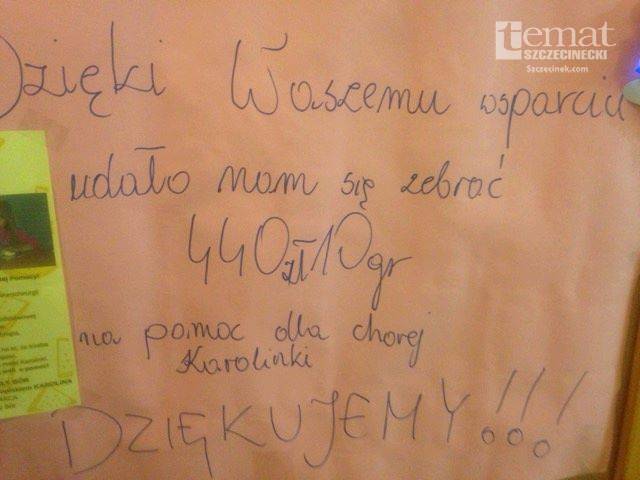 temat
SZCZECINECKI
Szczecinek.com
Dzięki Waszemu wsparciu
udało nam się zebrać
440zł10gr
na pomoc dla chorej
Karolinki
DZIĘKUJEMY!!!